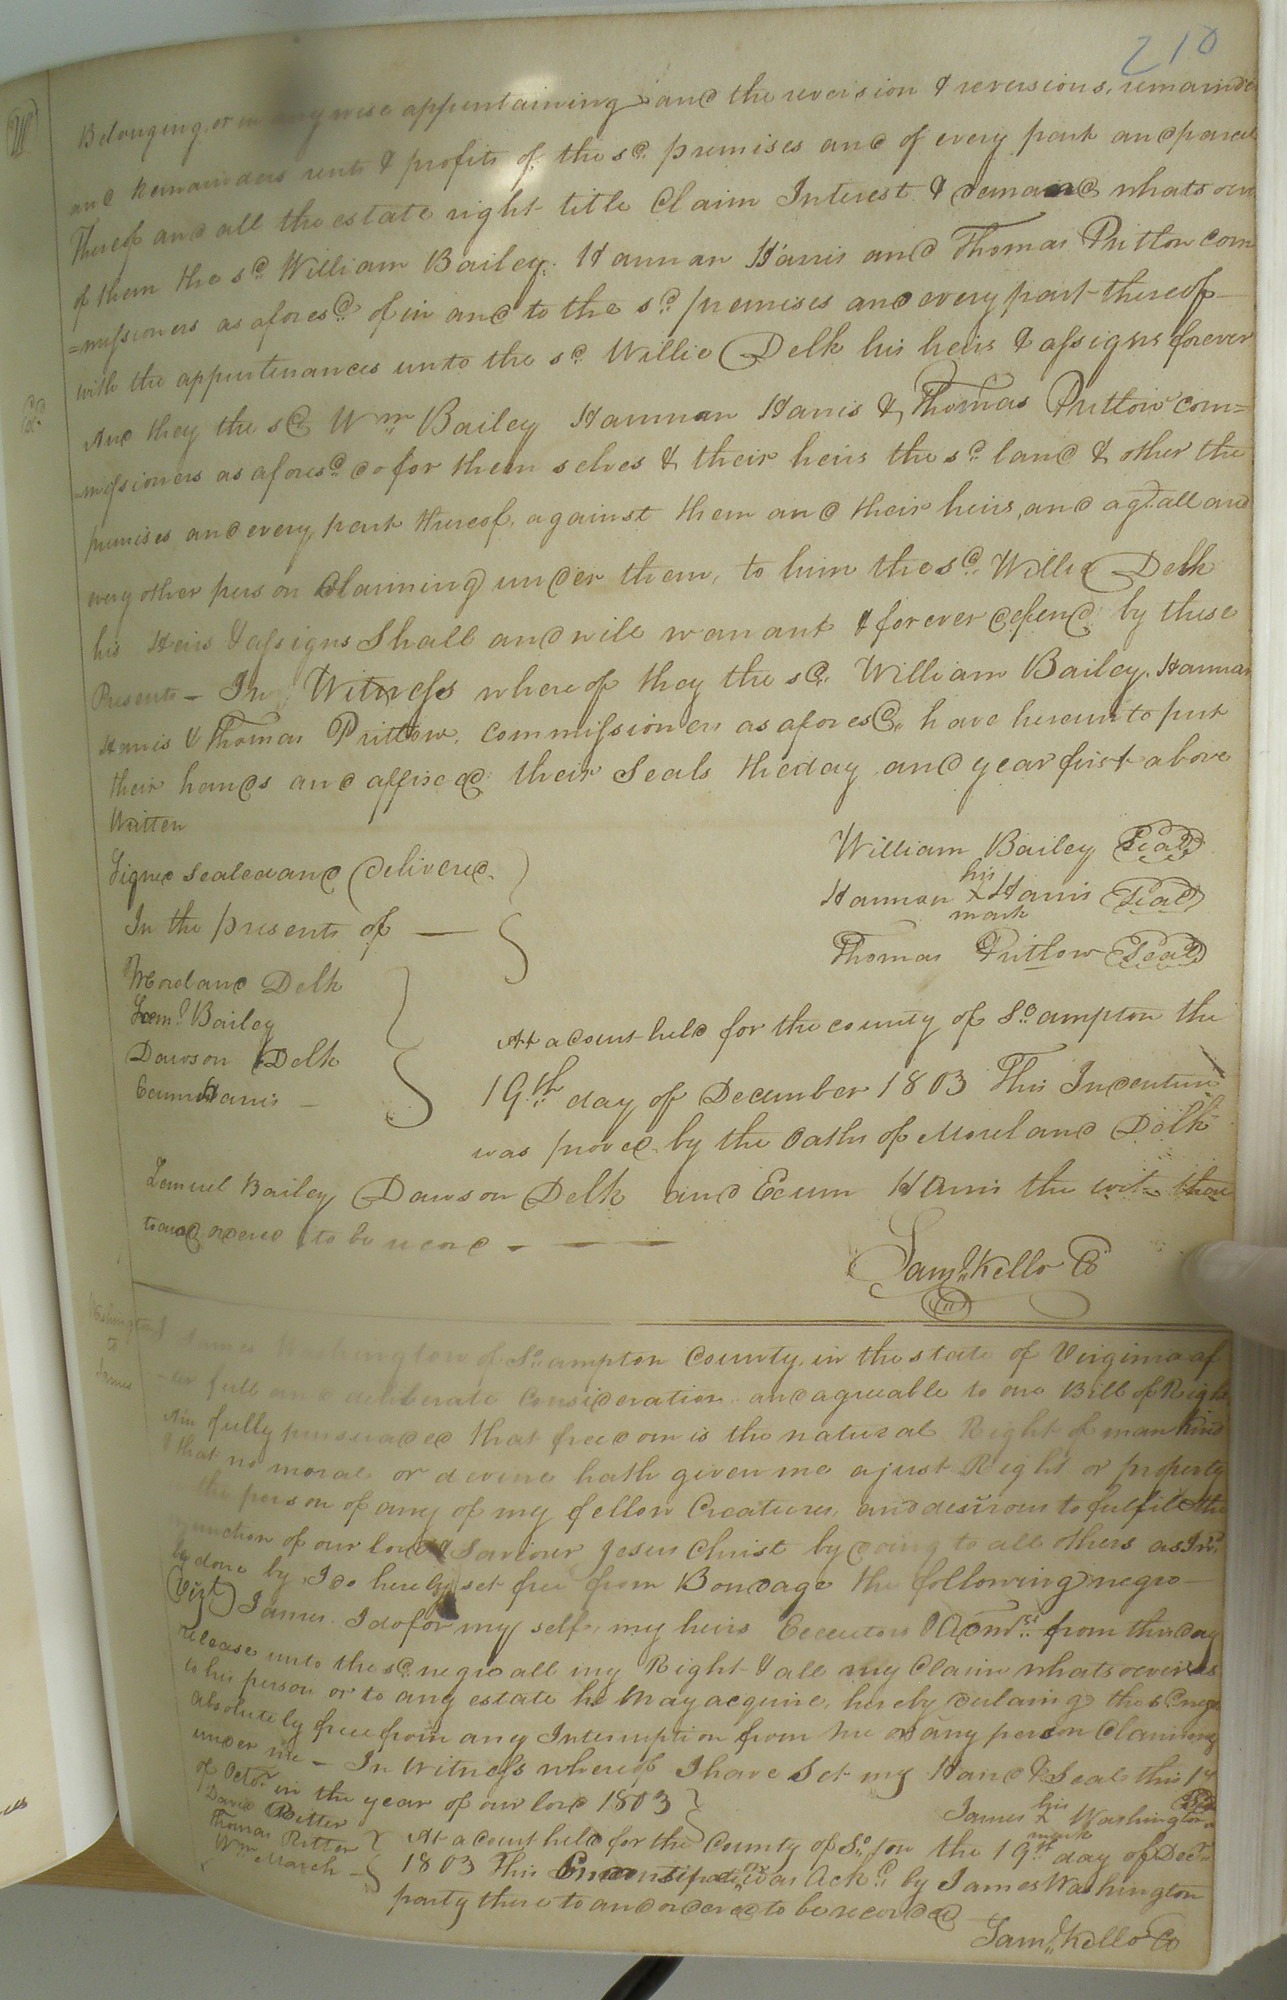 210
Belonging, or in any wise appertaining and the reversion & reversions, remainder
and Remainders rents & profits of the sd. premises and of every part and parcel
Thereof and all the estate right title Claim Interest & demand whatsoever
of them the sd. William Bailey. Hannan Harris and Thomas Pritlow com
=missioners as aforesd. of in and to the sd. premises and every part thereof
with the appurtenances unto the sd. Willie Delk his heirs & assigns forever
And they the sd. Wm. Bailey Hannan Harris & Thomas Pritlow com=
=missioners as aforesd. do for them selves & their heirs the sd. land & other the
premises and every part thereof, against them and their heirs, and agt. all and
every other person Claiming under them, to him the sd. Willie Delk
his Heirs & assigns Shall and will warrant & forever defend by these
Presents - In Witness whereof they the sd. William Bailey, Hannan
Harris & Thomas Pritlow. Commissioners as aforesd. have hereunto put
their hands and affixed their Seals the day and year first above
Written
William Bailey Seal
Signed Sealed and Delivered
his
Hannan X Harris Seal
mark
In the presents of —
Thomas Pritlow Seal
Moreland Delk
Leml. Bailey
Dawson Delk
Ecum Harris -
At a Court held for the county of So.ampton the
19th. day of December 1803 This Indenture
was proved by the Oaths of Moreland Delk
Lemuel Bailey Dawson Delk and Ecum Harris the wit. there
to and ordered to be record - - - -
Saml. Kello CC
Washington
to
James
James Washington of So.ampton County, in the state of Virginia af
-ter full and deliberate Consideration and agreeable to our Bill of Rights
Am fully pursuaded that freedom is the natural Right of mankind
& that no moral or devine hath given me a just Right or property
the person of any of my fellow Creatures, and desirous to fulfill the
junction of our lord & Saviour Jesus Christ by doing to all others as I wd.
be done by, I do hereby set free from Bondage the following negro -
(Vizt) James. I do for my self, my heirs Executors & Admrs. from this day
release unto the sd. negro all my Right & all my Claim whatsoever as
to his person or to any estate he May acquire, hereby declaring the sd. negro
absolutely free from any Interruption from me or any person Claiming
under me - In Witness whereof I have Set my Hand & Seal this 14
of Octr. in the year of our lord 1803
his
James X Washington Seal
mark
David Ritter
Thomas Ritter
Wm. March -
At a Court held for the County of So.ton the 19th. day of Decr.
1803 This Emancipation was Ackd. by James Washington
party there to and ordered to be recorded
Saml. Kello CC